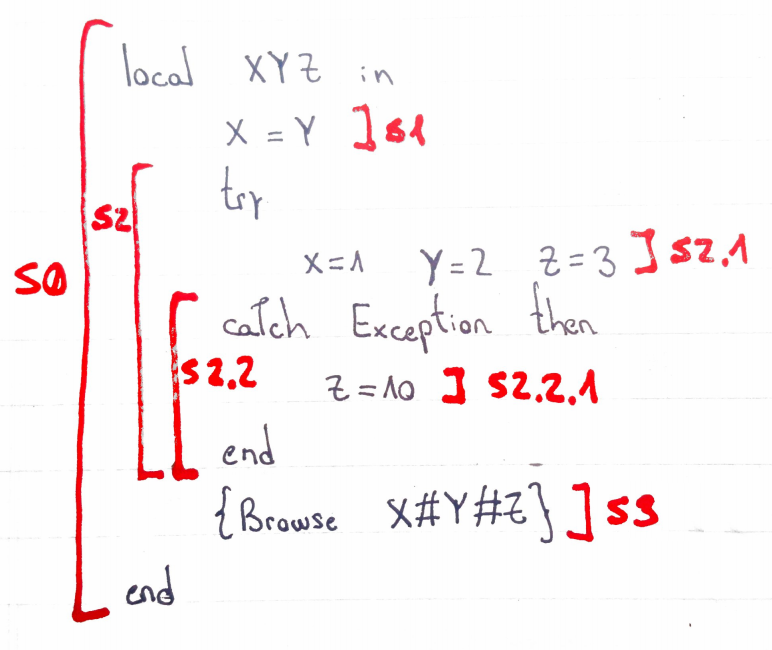 local XYZ in
X = Y ] S1
S2 try
S0 X=1 Y=2 Z=3 ] S2.1
catch Exception then
S2.2 Z=10 ] S2.2.1
end
{Browse X#Y#Z} ] S3
end